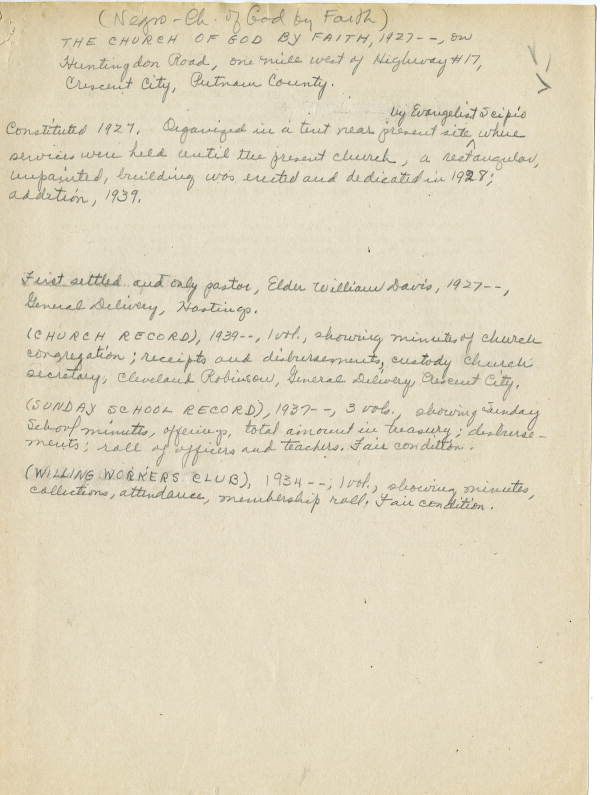 (Negro - Ch. of God by Faith)
THE CHURCH OF GOD BY FAITH, 1927--, on
Huntingdon Road, one mile west of Highway #17,
Crescent City, Putnam County.
by Evangelist Scipio
Constituted 1927. Organized in a tent near present site ^ where
services were held until the present church, a rectangular,
unpainted, building was erected and dedicated in 1928;
addition, 1939.
First settled and only pastor, Elder William Davis, 1927--,
General Delivery, Hastings.
(CHURCH RECORD), 1939--, 1 vol., showing minutes of church
congregation; receipts and disbursements, custody church
secretary, Cleveland Robinson, General Delivery, Crescent City.
(SUNDAY SCHOOL RECORD), 1937--, 3 vols., showing Sunday
School minutes, offerings, total amount in treasury; disburse-
ments; roll of officers and teachers. Fair condition.
(WILLING WORKERS CLUB), 1934--; 1 vol., showing minutes,
collections, attendance, membership roll. Fair condition.